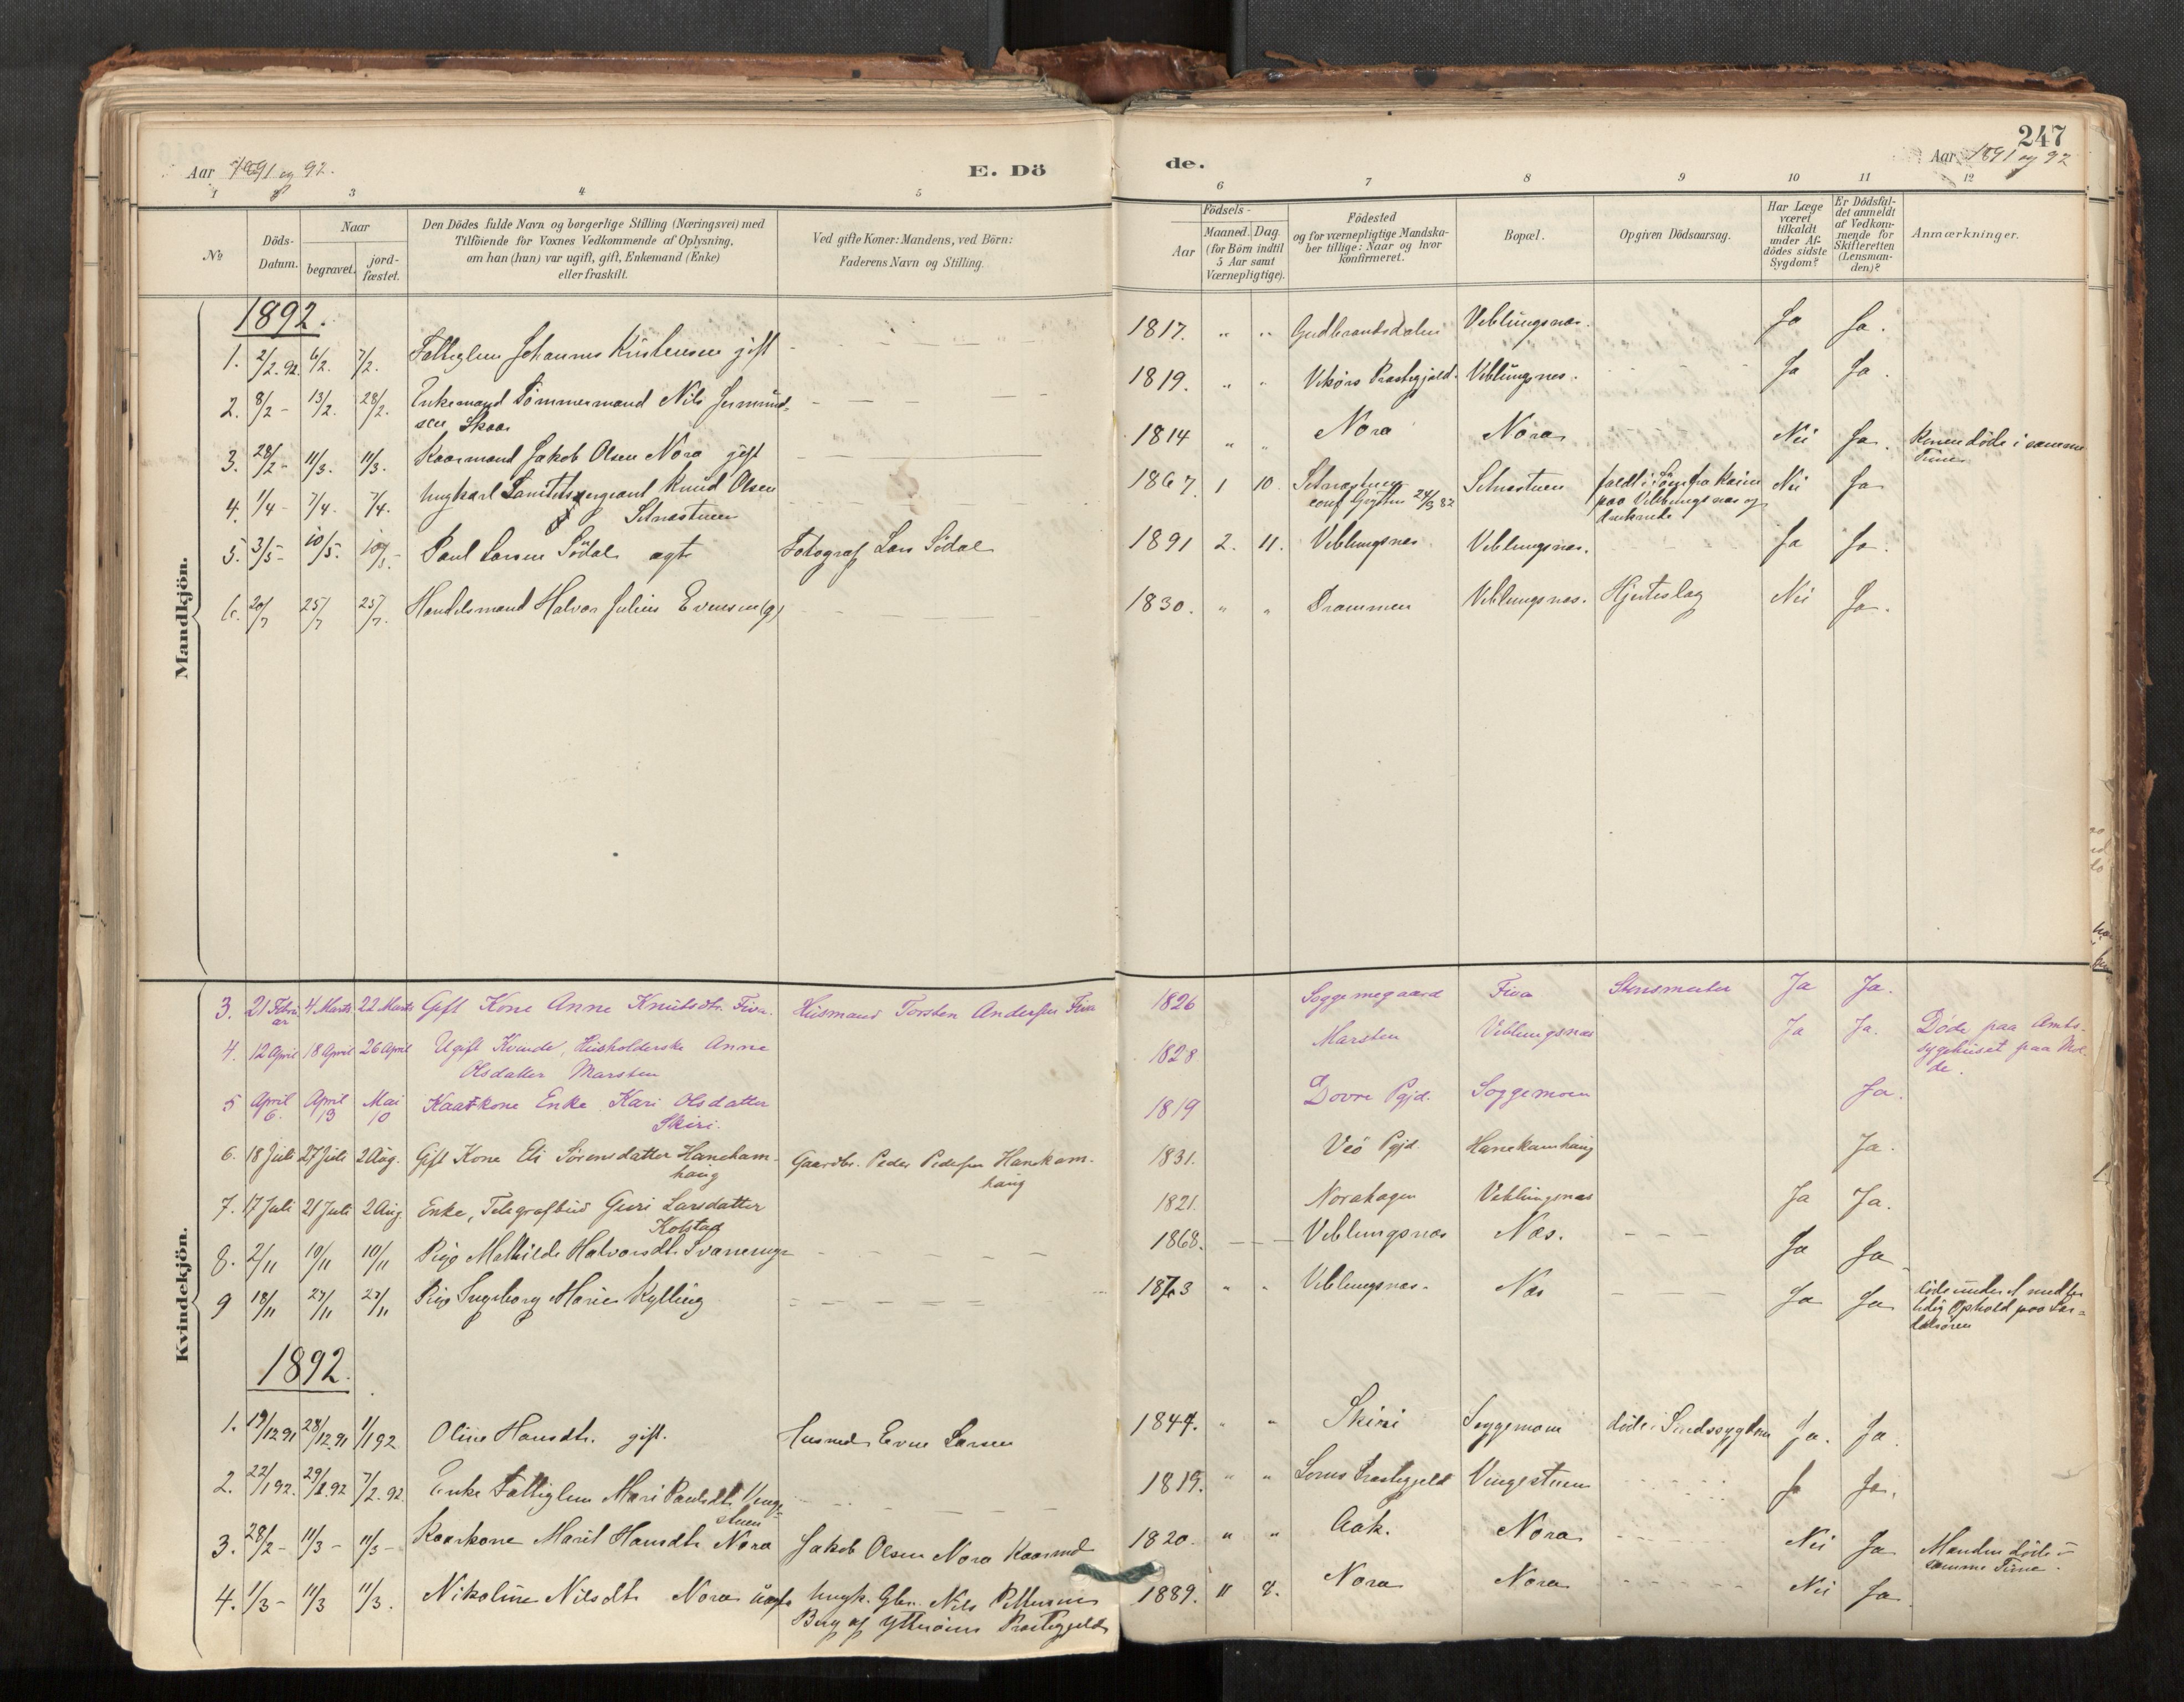 247
Aar 1891 og 92.
E. Dö
de.
Aar 1891 og 92
1 3 4 5 6 7 8 9 10 11 12
No
Döds-
Datum.
Naar
begravet.
jord-
fæstet.
Den Dödes fulde Navn og borgerlige Stilling (Næringsvei) med
Tilföiende for Voxnes Vedkommende af Oplysning,
om han (hun) var ugift, gift, Enkemand (Enke)
eller fraskilt.
Ved gifte Koner: Mandens, ved Börn:
Faderens Navn og Stilling.
Födsels-
Aar
Maaned. Dag
(for Börn indtil
5 Aar samt
Værnepligtige).
Födested
og for værnepligtige Mandska-
ber tillige: Naar og hvor
konfirmeret.
Bopæl.
Opgiven Dödsaarsag.
Har Læge
været
tilkaldt
under Af-
dödes sidste
Sygdom?
Er Dödsfal-
det anmeldt
af Vedkom-
mende for
Skifteretten
(Lensman-
den)?
Anmærkninger.
Mandkjön.
1892.
1. 2/2. 92. 6/2. 7/2. Fattiglem Johannes Kristensen gift 1817. " " Gudbrandsdalen Veblungsnæs. Ja Ja.
2. 8/2 - 13/2. 28/2. Enkemand Tömmermand Nils Jermund-
sen Skaar 1819. " " Vikörs Præstegjeld. Veblungsnes. Ja Ja.
3. 28/2 - 11/3. 11/3. Kaarmand Jakob Olsen Nora gift 1814 " " Nora Nora Nei Ja. Konen døde i samme
Time
4. 1/4 - 7/4. 7/4. Ungkarl Sanitetssergeant Knud Olsen
Setnæstuen 1867. 1 10. Setnæstuen
conf Grytten Setnæstuen faldt i Söen fra Kaien
paa Veblungsnæs og
druknede Nei Ja
5. 3/5 - 10/5. Paul Larsen Södal ægte Fotograf Lars Södal 1891 2. 11. Veblungsnæs Veblungsnæs. Ja Ja.
6. 20/7 25/7 25/7. Handelsmand Halvor Julius Evensen (g) 1830. " " Drammen Veblungsnæs. Hjerteslag Nei Ja.
Kvindekjön.
3. 21 Febru
ar 4 Marts 22 Marts Gift Kone Anne Knutsdtr. Fiva. Husmand Torsten Andersen Fiva 1826 Soggemegaard Fiva Ja Ja.
4. 12 April 18 April 26 April Ugift Kvinde, Husholderske Anne
Olsdatter Marsten 1828 Marsten Veblungsnæs Ja Ja. Døde paa Amts-
sygehuset paa Mol-
de.
5 April
6. April
13 Mai
10 Kaarkone Enke Kari Olsdatter
Skiri. 1819 Dovre Pgjd. Soggemoen Ja.
6. 18 Juli 27 Juli 2 Aug. Gift Kone Eli Sörensdatter Hanekam-
haug Gaardbr. Peder Pedersen Hanekam-
haug 1831. Veö Pgjd. Hanekamhaug Ja.
7. 17 Juli 21 Juli 2 Aug. Enke, Telegrafbud Guri Larsdatter
Kolstad 1821. Norahagen Veblungsnæs Ja Ja.
8. 2/11 10/11 10/11 Pige Mathilde Halvorsdtr. Svanemyr 1868. Veblungsnæs Næs. Ja Ja
9 18/11 27/11 27/11 Pige Ingeborg Marie Kylling 1873 " " Veblungsnæs. Næs Ja Ja døde under et midler
tidig Ophold paa Sun-
dalsören
1892.
1. 19/12 91 28/12 91 1/1 92 Oline Hansdtr. gift. Husmd Even Larsen 1844. " " Skiri Soggemoen døde i Sindssygdom Ja. Ja.
2. 22/1 92. 29/1 92 7/2. 92. Enke Fattiglem Mari Paulsdtr. Venge-
stuen 1819. " " Loms Præstegjeld Vengestuen Ja Ja.
3. 28/2 - 11/3 - 11/3 - Kaarkone Marit Hansdtr Nora Jakob Olsen Nora Kaarmd 1820. " " Aak. Nora Nei Ja Manden døde i
samme Time.
4. 1/3 - 11/3 11/3. Nikoline Nilsdtr Nora uægte Ungk. Nils Pettersen
Berg af Ytteröens Præstegjeld 1889. 11 8. Nora Nora Nei Ja.